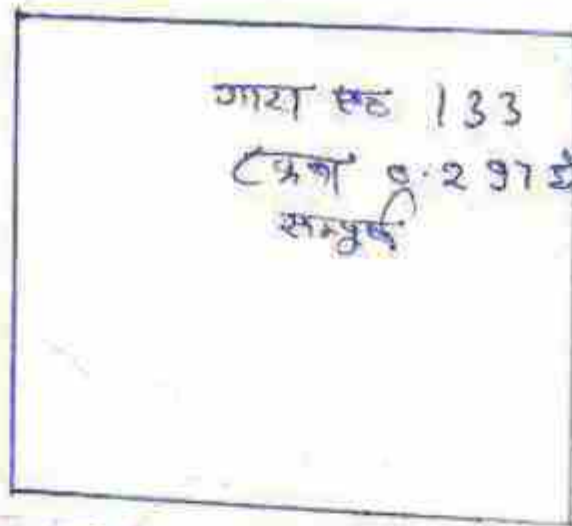 गाटा सं० 133
रकबा 0.297 हे
सम्पूर्ण